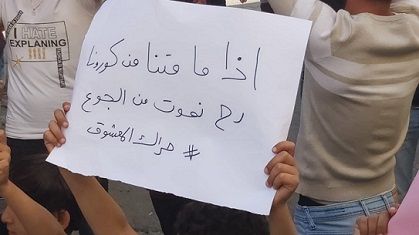 I HATE
EXPLAINING
اذا ما متنا من كورونا
رح نموت من الجوع
# حراك المعشوق